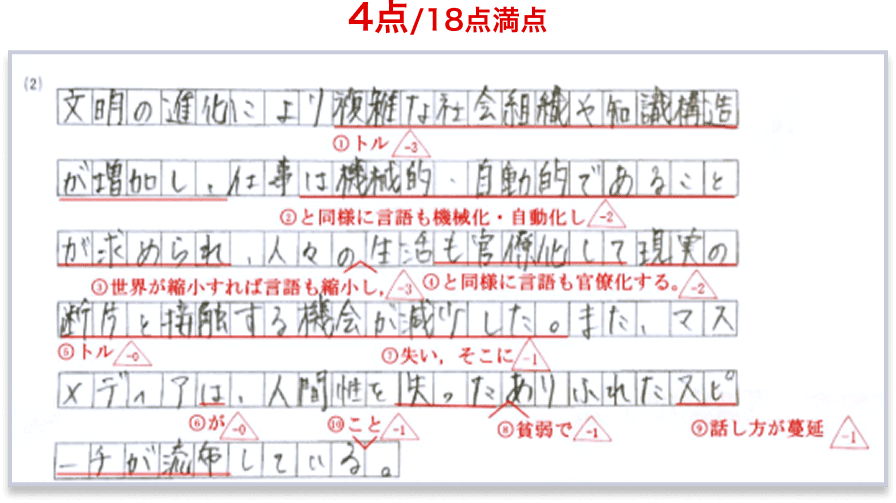 4点/18点満点
(2)
文明の進化により複雑な社会組織や知識構造
①トル -3
が増加し、仕事は機械的・自動的であること
②と同様に言語も機械化・自動化し -2
が求められ、人々の生活も官僚化して現実の
③世界が縮小すれば言語も縮小し, -3 ④と同様に言語も官僚化する。 -2
断片と接触する機会が減少した。また、マス
⑤トル -0 ⑦失い,そこに -1
メディアは、人間性を失ったありふれたスピ
⑥が -0 ⑩こと -1 ⑧貧弱で -1 ⑨話し方が蔓延 -1
ーチが流布している。